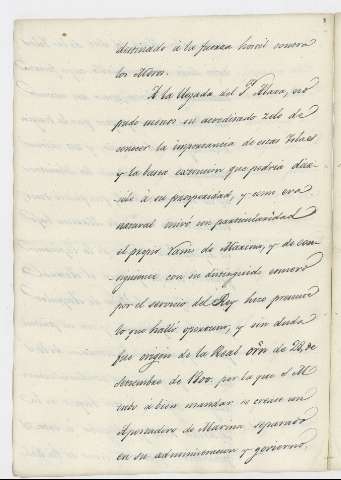 destinado à la fuerza honil contra
los Moros.
A la llegada del Sr. Alava, no
pudo menos su acreditado zelo de
conocer la importancia de estas Yslas
y la basta extencion que podria dar-
sele à su prosperidad, y como era
natural miró con particularidad
el propio Ramo de Marina, y de con-
siguiente con su distinguido esmero
por el servicio del Rey hizo presente
lo que halló oportuno, y sin duda
fue origen de la Real orñ de 28, de
Setiembre de 1800. por la que S M
tubo à bien mandar se crease un
Apostadero de Marina separado
en su administracion y govierno,